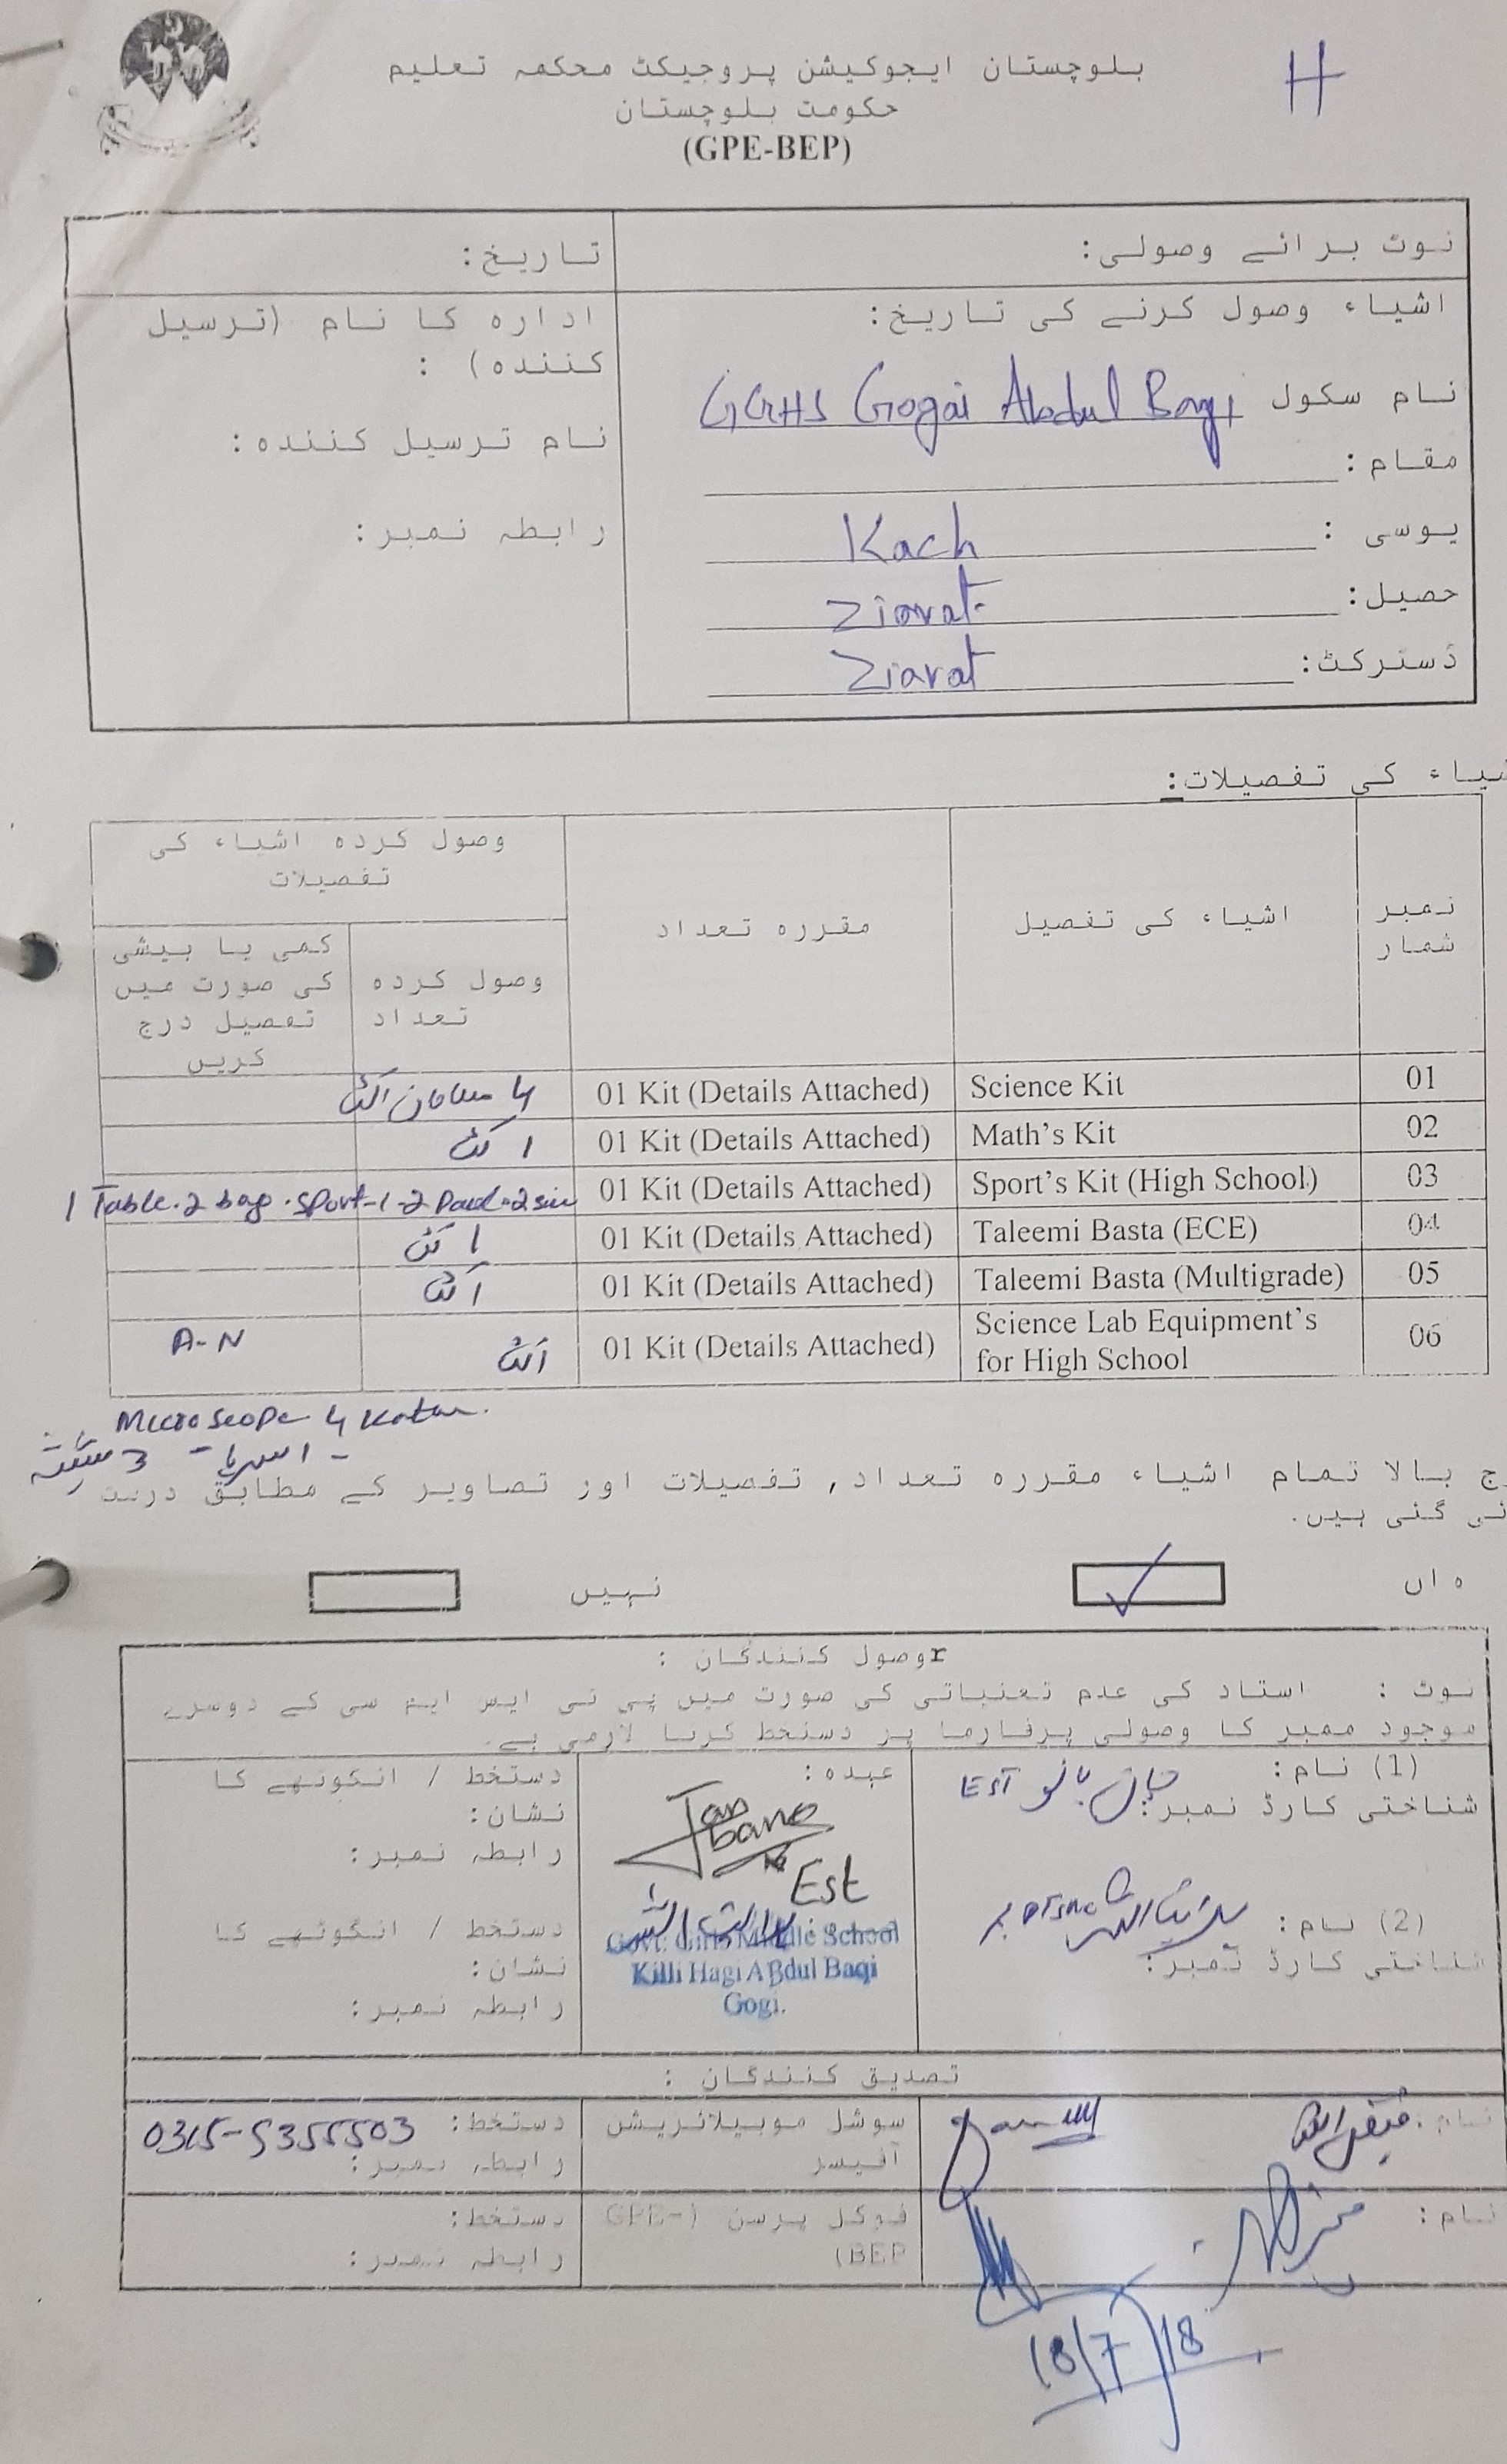 H
بلوچستان ایجوکیشن پروجیکٹ محکمہ تعلیم
حکومت بلوچستان
(GPE-BEP)
نوٹ برائے وصولی:
تاریخ:
اشیاء وصول کرنے کی تاریخ:
ادارہ کا نام (ترسیل
کنندہ) :
نام سکول GGHS Gogai Abdul Baqi
نام ترسیل کنندہ:
مقام:
یوسی : Kach
رابطہ نمبر:
حصیل: Ziarat
ڈسٹرکٹ: Ziarat
یاء کی تفصیلات:
نمبر شمار
اشیاء کی تفصیل
مقررہ تعداد
وصول کردہ اشیاء کی
تفصیلات
وصول کردہ
تعداد
کمی یا بیشی
کی صورت میں
تفصیل درج
کریں
01 Science Kit 01 Kit (Details Attached)
02 Math's Kit 01 Kit (Details Attached) 1 کٹ
03 Sport's Kit (High School) 01 Kit (Details Attached) 1 Table. 2 bag. sport-1-2
04 Taleemi Basta (ECE) 01 Kit (Details Attached) 1 کٹ
05 Taleemi Basta (Multigrade) 01 Kit (Details Attached) 1 کٹ
06 Science Lab Equipment's
for High School 01 Kit (Details Attached) 1 کٹ A-N
Microscope
3
ج بالا تمام اشیاء مقررہ تعداد, تفصیلات اور تصاویر کے مطابق درست
ئی گئی ہیں.
ہاں ✓
نہیں
rوصول کنندگان :
نوٹ : استاد کی عدم تعنباتی کی صورت میں پی ٹی ایس ایم سی کے دوسرے
موجود ممبر کا وصولی پرفارما پر دستخط کرنا لازمی ہے.
(1) نام: جان بانو EST
شناختی کارڈ نمبر:
عہدہ:
Jan
bano
Est
دستخط / انگوٹھے کا
نشان:
رابطہ نمبر:
(2) نام:
شناختی کارڈ نمبر:
Govt: Girls Middle School
Killi Hagi Abdul Baqi
Gogi.
دستخط / انگوٹھے کا
نشان:
رابطہ نمبر:
تصدیق کنندگان :
نام:
سوشل موبیلائزیشن
آفیسر
دستخط: 0315-5355503
رابطہ نمبر:
نام:
فوکل پرسن (GPE-
BEP)
دستخط:
رابطہ نمبر:
18/7/18